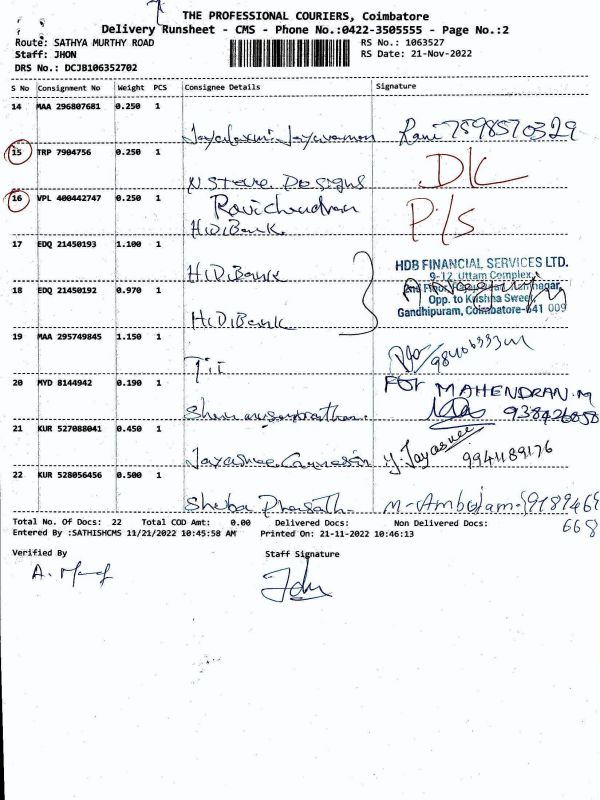 THE PROFESSIONAL COURIERS, Coimbatore
Delivery Runsheet - CMS - Phone No.:0422-3505555 - Page No.:2
Route: SATHYA MURTHY ROAD RS No.: 1063527
Staff: JHON RS Date: 21-Nov-2022
DRS No.: DCJB106352702
S No Consignment No Weight PCS Consignee Details Signature
14 MAA 296807681 0.250 1
Rani 7598570329
15 TRP 7904756 0.250 1
DL
N Store Designs
16 VPL 400442747 0.250 1
Ravichandran P/s
HDBank
17 EDQ 21450193 1.100 1
HDBank
HDB FINANCIAL SERVICES LTD.
9-12, Uttam Complex,
18 EDQ 21450192 0.970 1
Opp. to Krishna Sweet
Gandhipuram, Coimbatore-641 009
HDBank
19 MAA 295749845 1.150 1
T.I
20 MYD 8144942 0.190 1
For MAHENDRAN.M
21 KUR 527088041 0.450 1
Jayashree Y. Jayashree 9941189176
22 KUR 528056456 0.500 1
Sheba M-Ambujam-
668
Total No. Of Docs: 22 Total COD Amt: 0.00 Delivered Docs: Non Delivered Docs:
Entered By :SATHISHCMS 11/21/2022 10:45:58 AM Printed On: 21-11-2022 10:46:13
Verified By Staff Signature
John